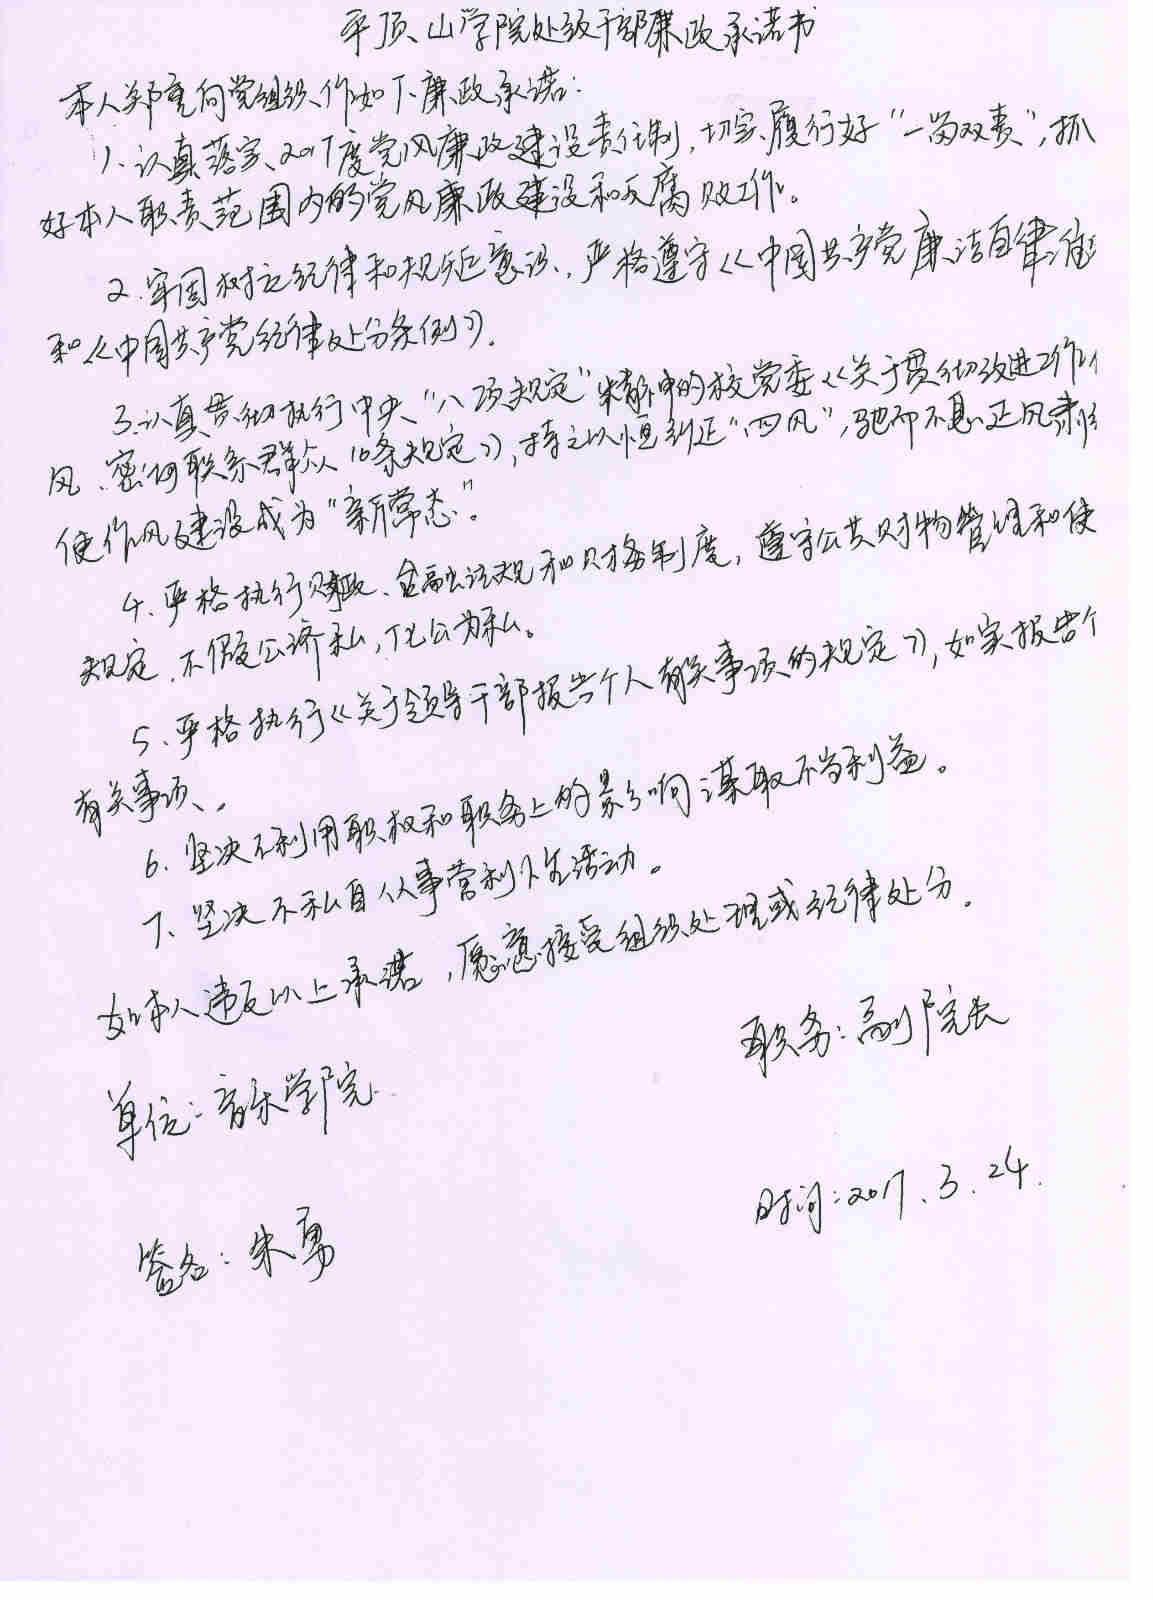 平顶山学院处级干部廉政承诺书
本人郑重向党组织作如下廉政承诺：
1、认真落实2017度党风廉政建设责任制，切实履行好“一岗双责”，抓
好本人职责范围内的党风廉政建设和反腐败工作。
2、牢固树立纪律和规矩意识，严格遵守《中国共产党廉洁自律准
和《中国共产党纪律处分条例》。
3、认真贯彻执行中央“八项规定”精神中的校党委《关于贯彻改进工作
风、密切联系群众10条规定》，持之以恒纠正“四风”，驰而不息正风肃纪
使作风建设成为“新常态”。
4、严格执行财政、金融法规和财务制度，遵守公共财物管理和使
规定，不假公济私，化公为私。
5、严格执行《关于领导干部报告个人有关事项的规定》，如实报告个
有关事项。
6、坚决不利用职权和职务上的影响谋取不当利益。
7、坚决不私自从事营利性活动。
如本人违反以上承诺，愿意接受组织处理或纪律处分。
职务：副院长
单位：音乐学院
时间：2017.3.24.
签名：朱勇